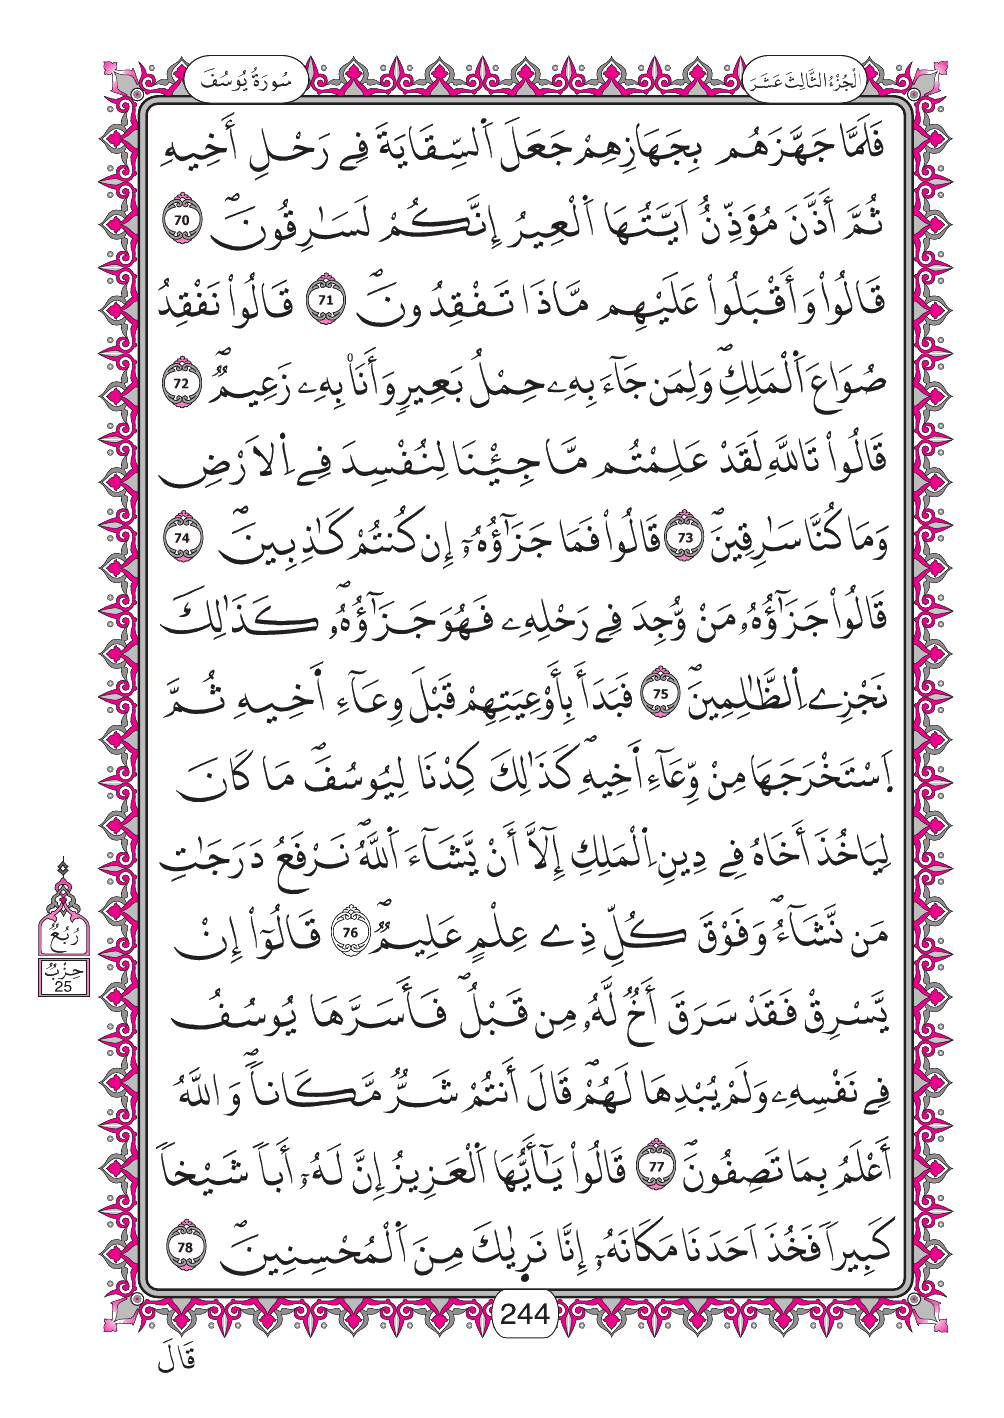 سُورَةُ يُوسُفَ
اَلْجُزْءُ الثَّالِثَ عَشَرَ
فَلَمَّا جَهَّزَهُم بِجَهَازِهِمْ جَعَلَ اَ۬لسِّقَايَةَ فِے رَحْلِ أَخِيهِ
ثُمَّ أَذَّنَ مُوَ۬ذِّنٌ اَيَّتُهَا اَ۬لْعِيرُ إِنَّكُمْ لَسَٰرِقُونَۖ 70
قَالُواْ وَأَقْبَلُواْ عَلَيْهِم مَّاذَا تَفْقِدُونَۖ 71 قَالُواْ نَفْقِدُ
صُوَاعَ اَ۬لْمَلِكِۖ وَلِمَن جَآءَ بِهِۦ حِمْلُ بَعِيرٖ وَأَنَا۠ بِهِۦ زَعِيمٞۖ 72
قَالُواْ تَاللَّهِ لَقَدْ عَلِمْتُم مَّا جِئْنَا لِنُفْسِدَ فِے اِ۬لَارْضِ
وَمَا كُنَّا سَٰرِقِينَۖ 73 قَالُواْ فَمَا جَزَٰٓؤُهُۥٓ إِن كُنتُمْ كَٰذِبِينَۖ 74
قَالُواْ جَزَٰٓؤُهُۥ مَنْ وُّجِدَ فِے رَحْلِهِۦ فَهُوَ جَزَٰٓؤُهُۥۖ كَذَٰلِكَ
نَجْزِے اِ۬لظَّٰلِمِينَۖ 75 فَبَدَأَ بِأَوْعِيَتِهِمْ قَبْلَ وِعَآءِ اَ۬خِيهِ ثُمَّ
اَ۪سْتَخْرَجَهَا مِنْ وِّعَآءِ اَ۬خِيهِۖ كَذَٰلِكَ كِدْنَا لِيُوسُفَۖ مَا كَانَ
لِيَاخُذَ أَخَاهُ فِے دِينِ اِ۬لْمَلِكِ إِلَّآ أَنْ يَّشَآءَ اَ۬للَّهُۖ نَرْفَعُ دَرَجَٰتِ
مَن نَّشَآءُۖ وَفَوْقَ كُلِّ ذِے عِلْمٍ عَلِيمٞۖ 76 قَالُوٓاْ إِنْ
يَّسْرِقْ فَقَدْ سَرَقَ أَخٞ لَّهُۥ مِن قَبْلُۖ فَأَسَرَّهَا يُوسُفُ
فِے نَفْسِهِۦ وَلَمْ يُبْدِهَا لَهُمْۖ قَالَ أَنتُمْ شَرّٞ مَّكَاناٗۖ وَاللَّهُ
أَعْلَمُ بِمَا تَصِفُونَۖ 77 قَالُواْ يَٰٓأَيُّهَا اَ۬لْعَزِيزُ إِنَّ لَهُۥٓ أَباٗ شَيْخاٗ
كَبِيراٗ فَخُذَ اَحَدَنَا مَكَانَهُۥٓ إِنَّا نَر۪يٰكَ مِنَ اَ۬لْمُحْسِنِينَۖ 78
رُبُعٌ
حِزْبٌ
25
244
قَالَ